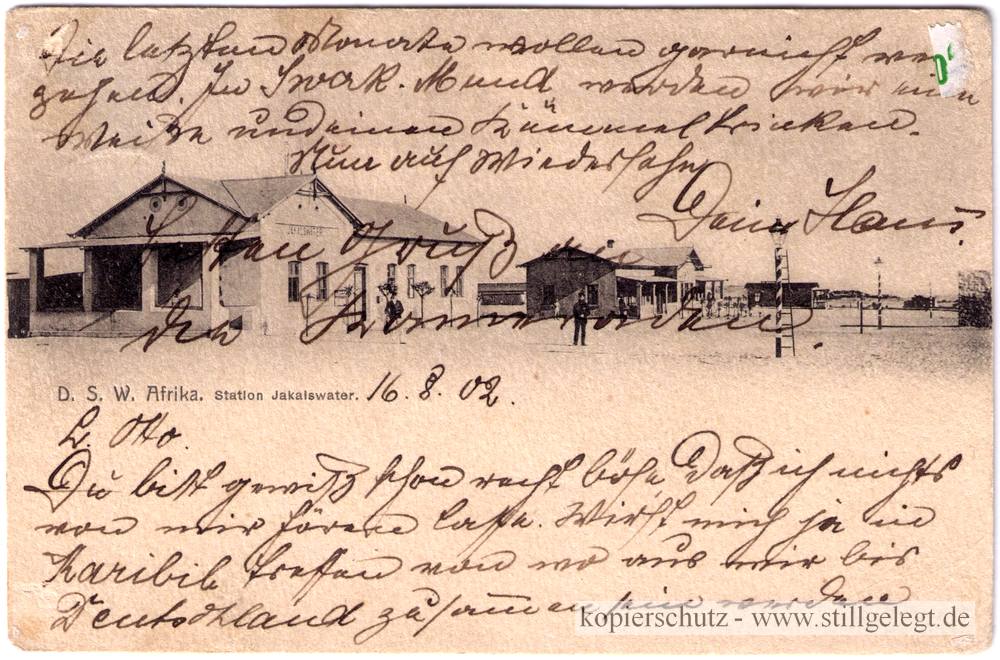 Die letzten Monate wollen garnicht ver
gehen. In Swak. Mund werden wir eine
Weiße und einen Kümmel trinken.
Nun auf Wiedersehn
Dein Hans.
JAKALSWATER
Gruß an
die Kameraden.
D. S. W. Afrika. Station Jakalswater. 16. 8. 02.
L. Otto.
Du bist gewiß schon recht böse daß ich nichts
von mir hören laße. Wirst mich ja in
Karibib treffen von wo aus wir bis
Deutschland zusammen sein werden
kopierschutz - www.stillgelegt.de